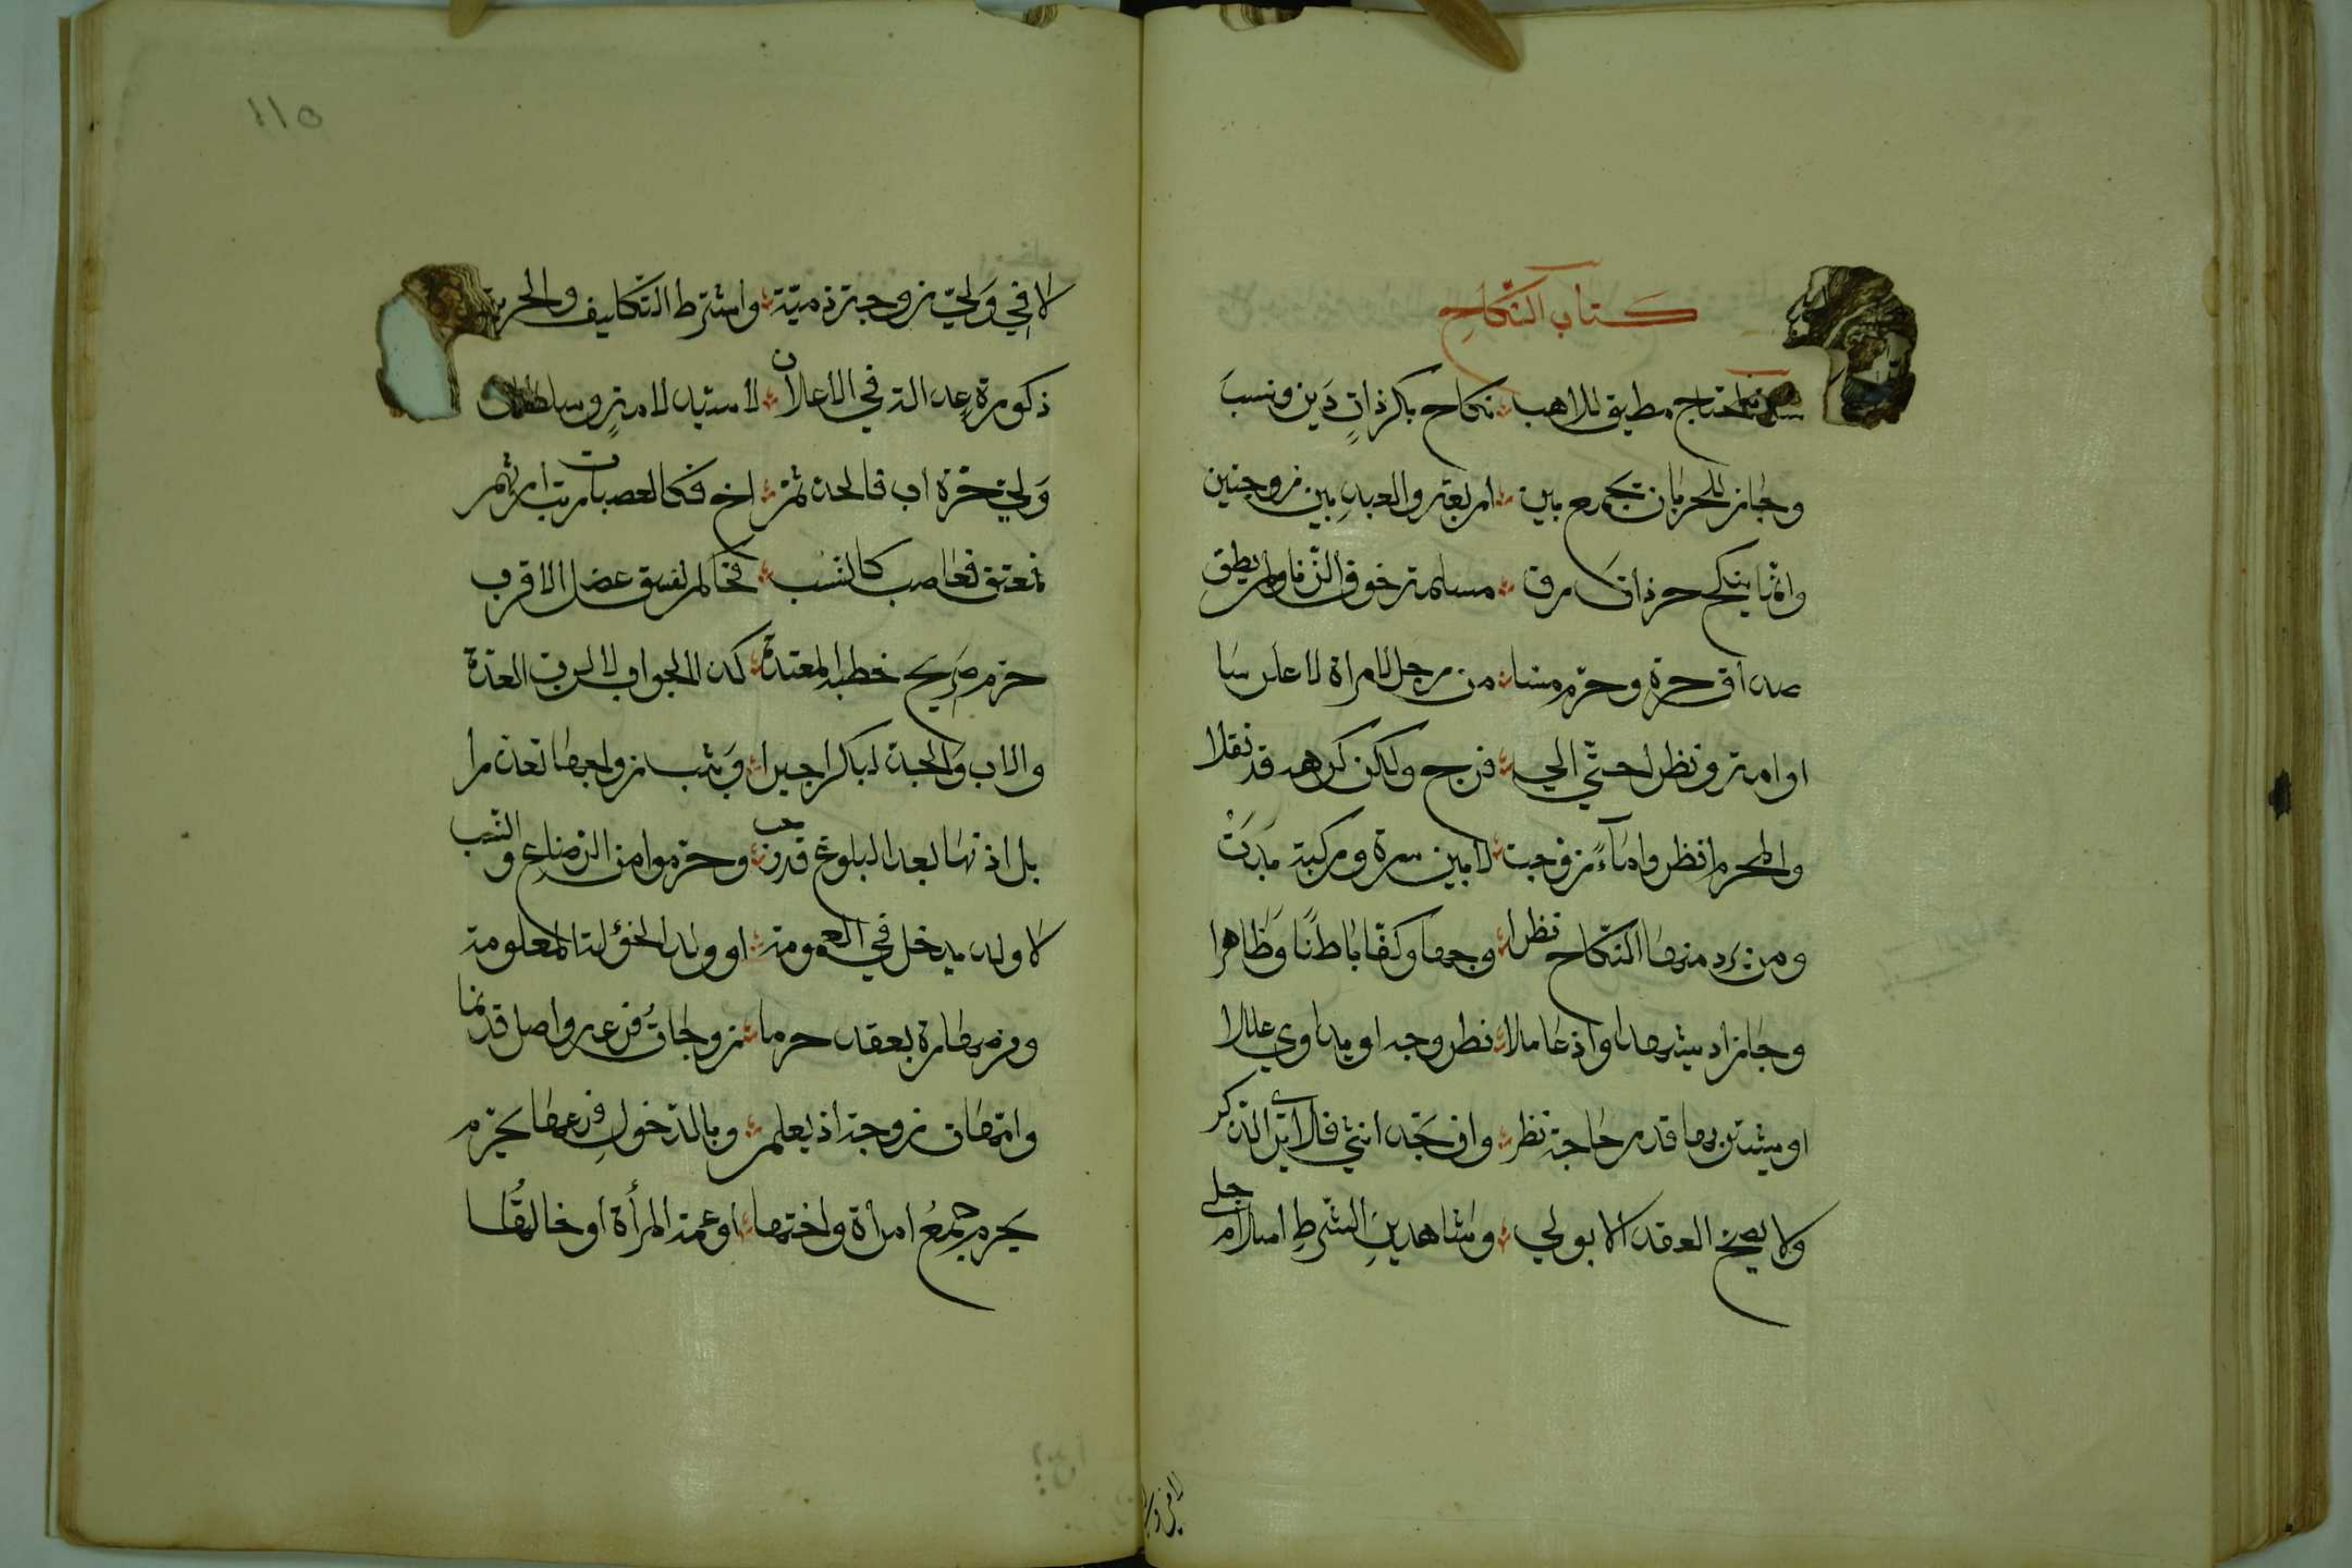 كتاب النكاح
سن لمحتاج مطيق للاهب ؞ نكاح بكر ذات دين ونسب
وجاز للحر بان يجمع بين ؞ اربعة والعبد بين زوجتين
وانما ينكح حر ذات رق ؞ مسلمة خوف الزنا ولم يطق
صداق حرة وحرم مسا ؞ من رجل لامراة لا عرسا
او امة ونظرا حتى الى ؞ فرج ولكن كرهه قد نقلا
والمحرم انظر واماءً زوجت ؞ لا بين سرة وركبة بدت
ومن يرد منها النكاح نظرا ؞ وجها وكفا باطنًا وظاهرا
وجاز ان يشهدا واذ عاملا ؞ نظر وجه او يداوي عللا
او يشترى بها قدر حاجة نظر ؞ وان تجد انثى فلا يرى الذكر
ولا يصح العقد الا بولي ؞ وشاهدين الشرط اسلام جلي
لا في ولي
١١٥
لا في ولي زوجة ذمية ؞ واشترط التكليف والحرية
ذكورة عدالة في الاعلان ؞ لا سيد لامة وسلطان
ولي حرة اب فالجد ثم ؞ اخ فكالعصبات رتب ارثهم
فمعتق فعاصب كالنسب ؞ فحاكم لفسق عضل الاقرب
حرم صريح خطبة المعتدة ؞ كذا الجواب لا لرب العدة
والاب والجد لبكر اجبرا ؞ وثيب زواجها تعذرا
بل اذنها بعد البلوغ قد وجب ؞ وحرموا من الرضاع والنسب
لا ولد يدخل في العمومة ؞ او ولد الخؤلة المعلومة
ومن صهارة بعقد حرما ؞ زوجات فرعه واصل قد نما
وامهات زوجة اذ يعلم ؞ وبالدخول فرعها يحرم
يحرم جمع امرأة واختها ؞ او عمة المرأة او خالتها